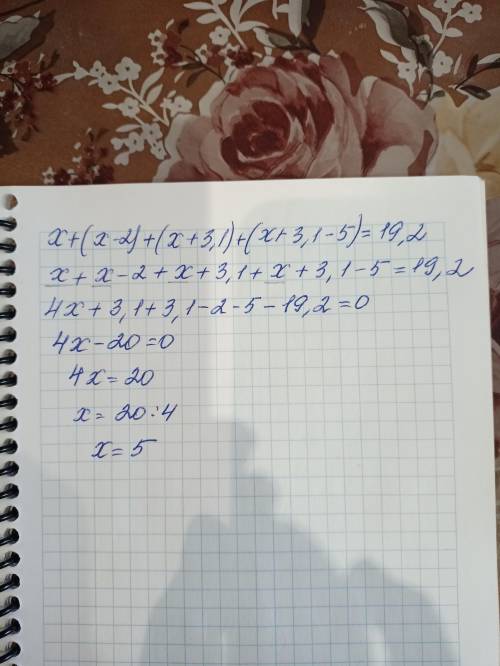 x+(x-2)+(x+3,1)+(x+3,1-5)=19,2
x+x-2+x+3,1+x+3,1-5=19,2
4x+3,1+3,1-2-5-19,2=0
4x-20=0
4x=20
x=20:4
x=5